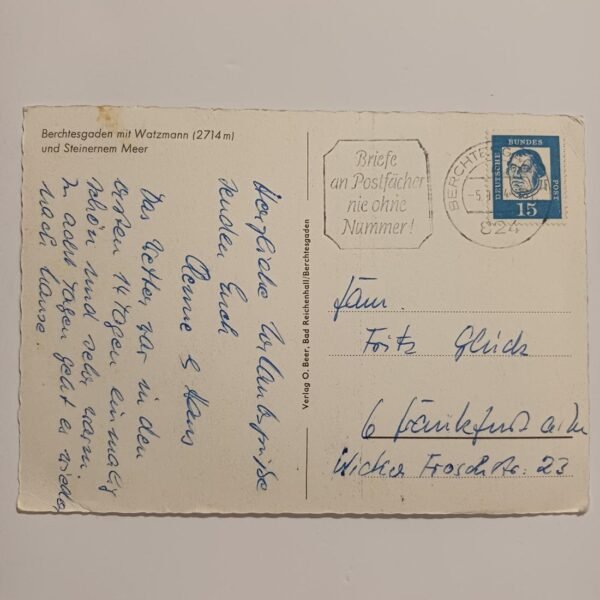 Berchtesgaden mit Watzmann (2714 m)
und Steinernem Meer
Herzliche Urlaubsgrüße
senden Euch
& Hans
Das Wetter war in den
ersten 14 Tagen einmalig
schön und sehr warm.
In acht Tagen geht es wieder
nach Hause.
Verlag O. Beer, Bad Reichenhall/Berchtesgaden
Briefe
an Postfächer
nie ohne
Nummer!
BERCHTESG
824
DEUTSCHE BUNDES POST
15
Fam.
Fritz Glück
6 Frankfurt a. M.
Wicker Froschstr. 23